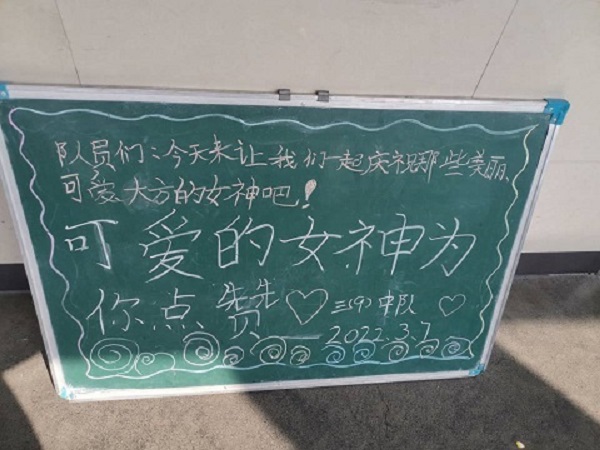 队员们:今天来让我们一起庆祝那些美丽、
可爱、大方的女神吧!
可爱的女神为
你点赞♡三(9)中队♡
2022.3.7